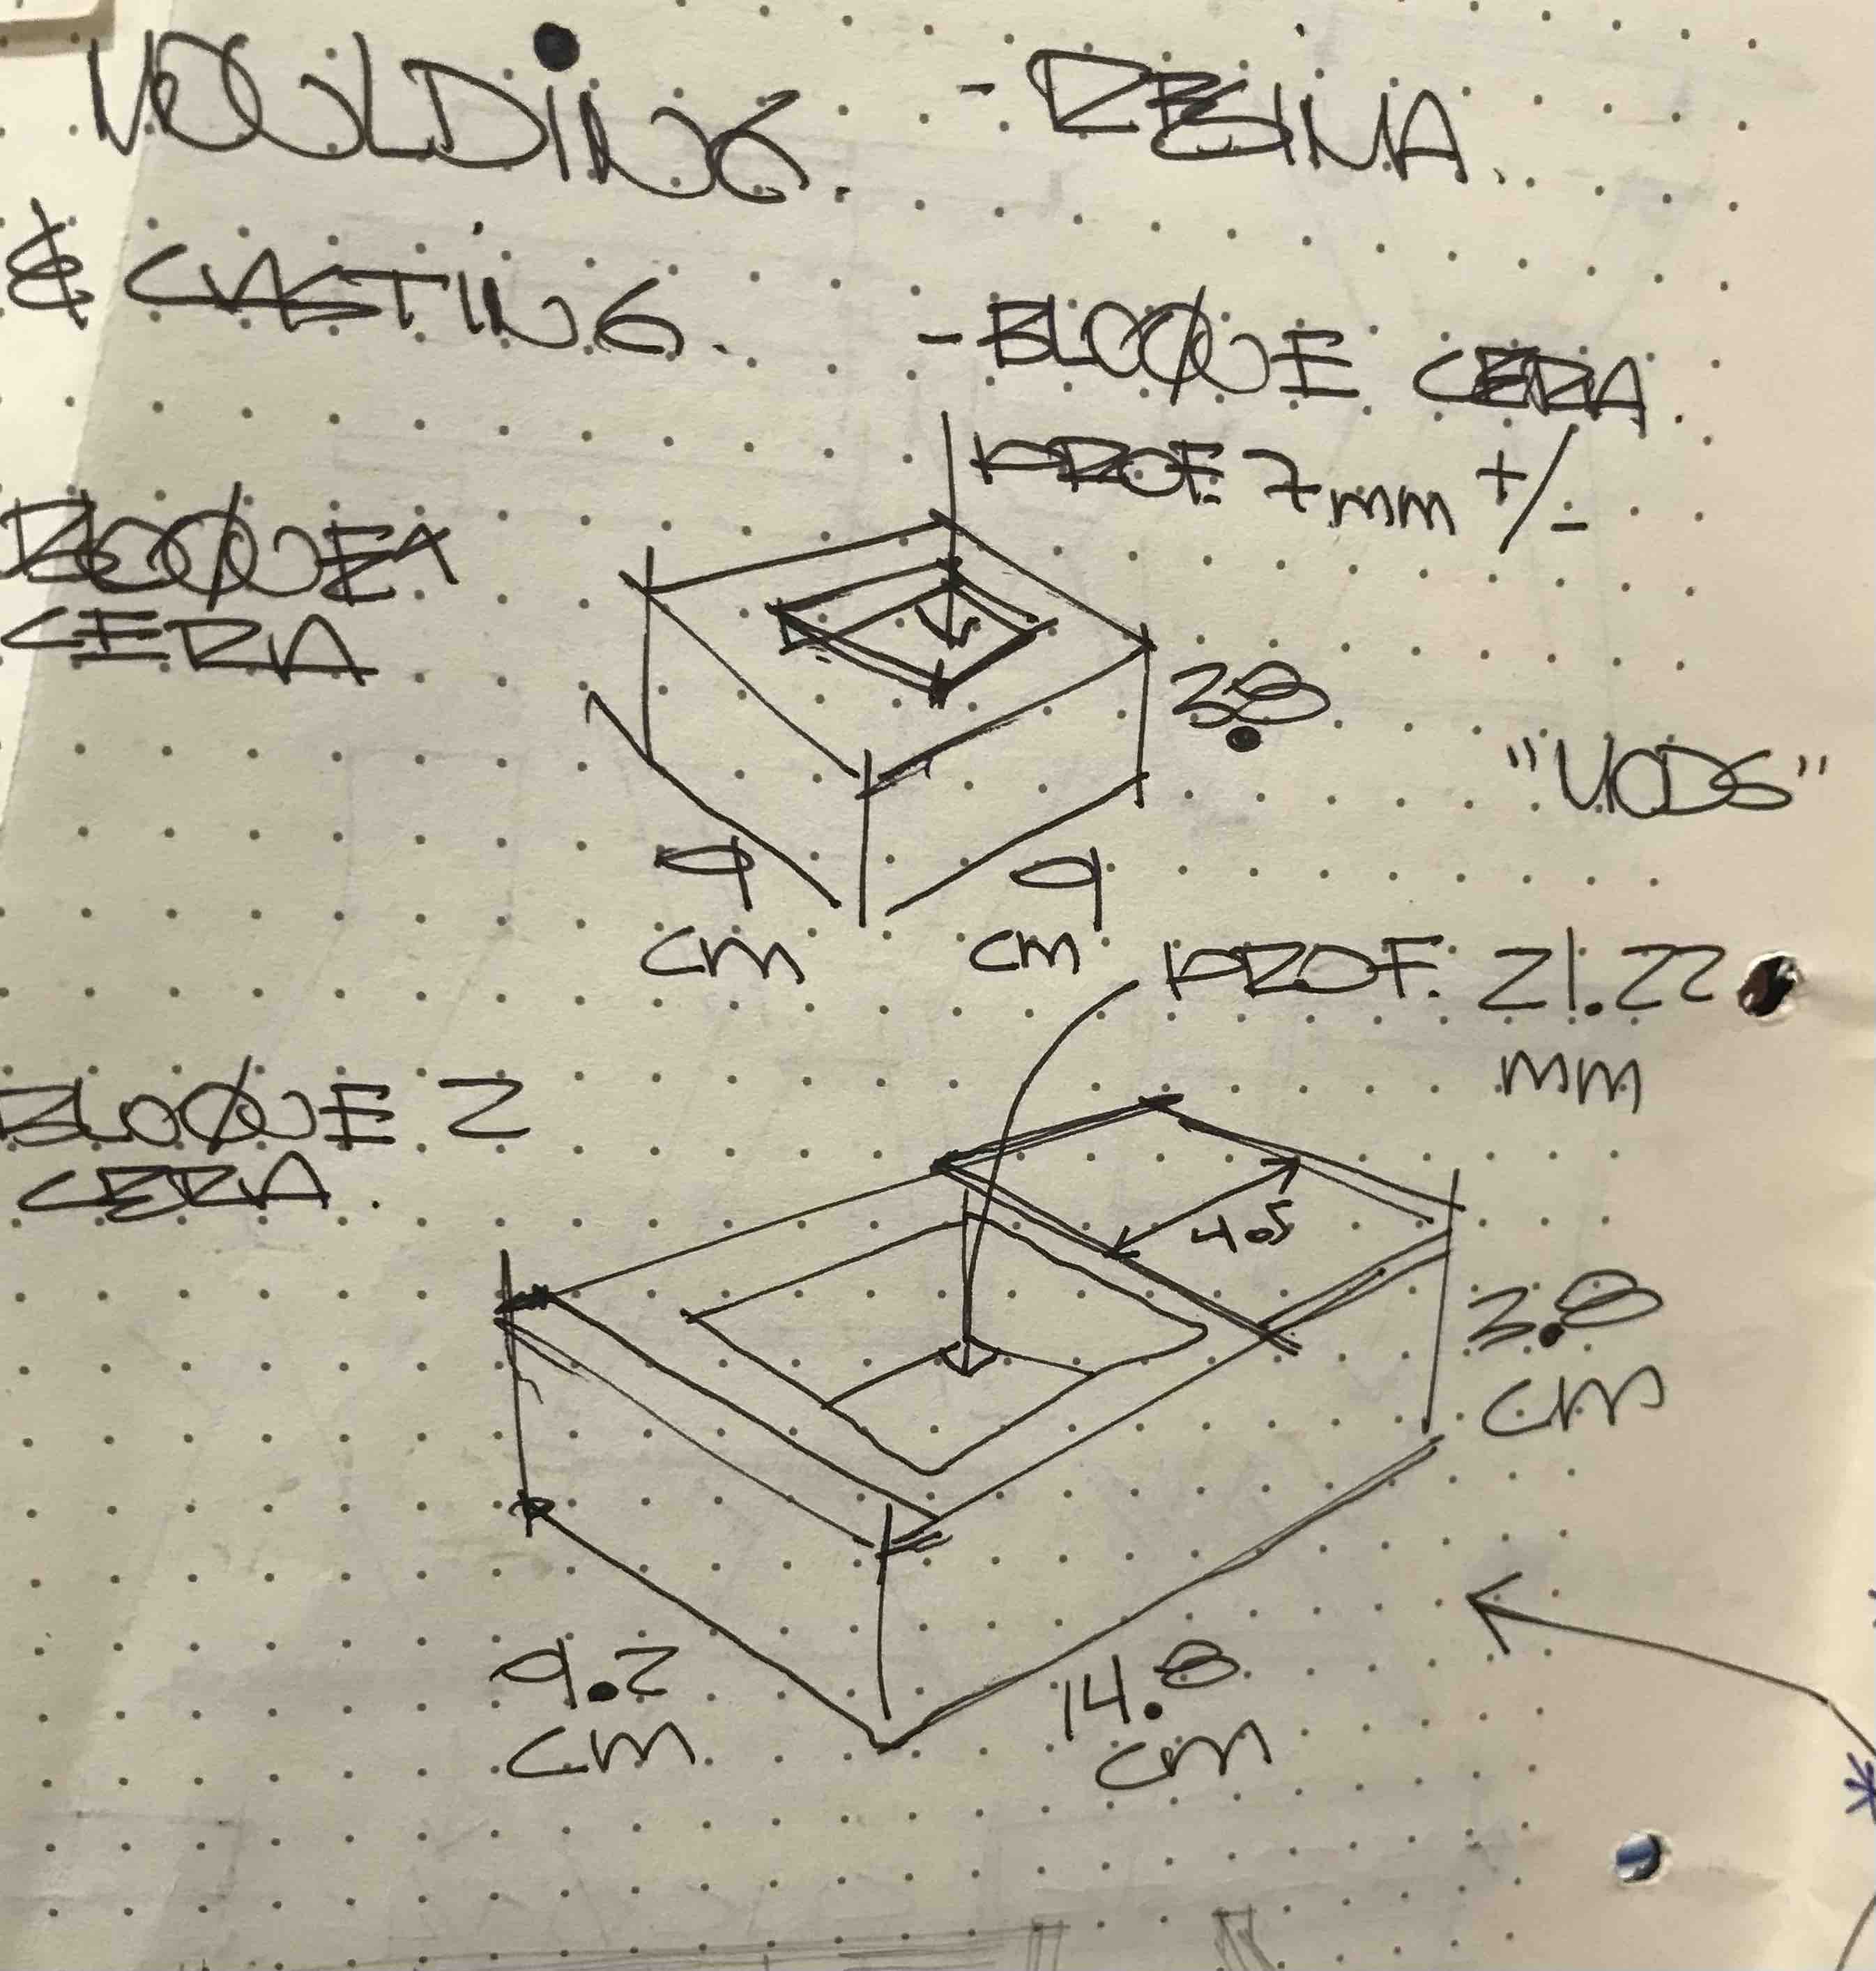 MOULDING.
& CASTING.
- RESINA.
- BLOQUE CERA.
PROF. 7mm +/-
BLOQUE 1
CERA
3.8
9
cm
9
cm
"MODS"
PROF. 21.22
mm
BLOQUE 2
CERA.
4.5
3.8
cm
9.2
cm
14.8
cm